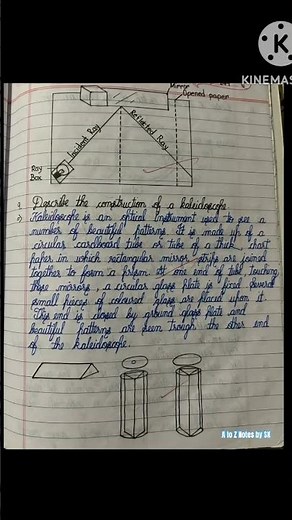 KINEMAS
Mirror
Opened paper
Incident Ray
Reflected Ray
Ray
Box
Describe the construction of a kaleidoscope
Kaleidoscope is an optical Instrument used to see a
number of beautiful patterns. It is made up of a
circular cardboard tube or tube of a thick, chart
paper in which rectangular mirror strips are joined
together to form a prism. At one end of tube, touching
these mirrors, a circular glass plate is fixed. Several
small pieces of coloured glass are placed upon it.
This end is closed by ground glass plate and
beautiful patterns are seen trough the other end
of the kaleidoscope.
A to Z Notes by SK